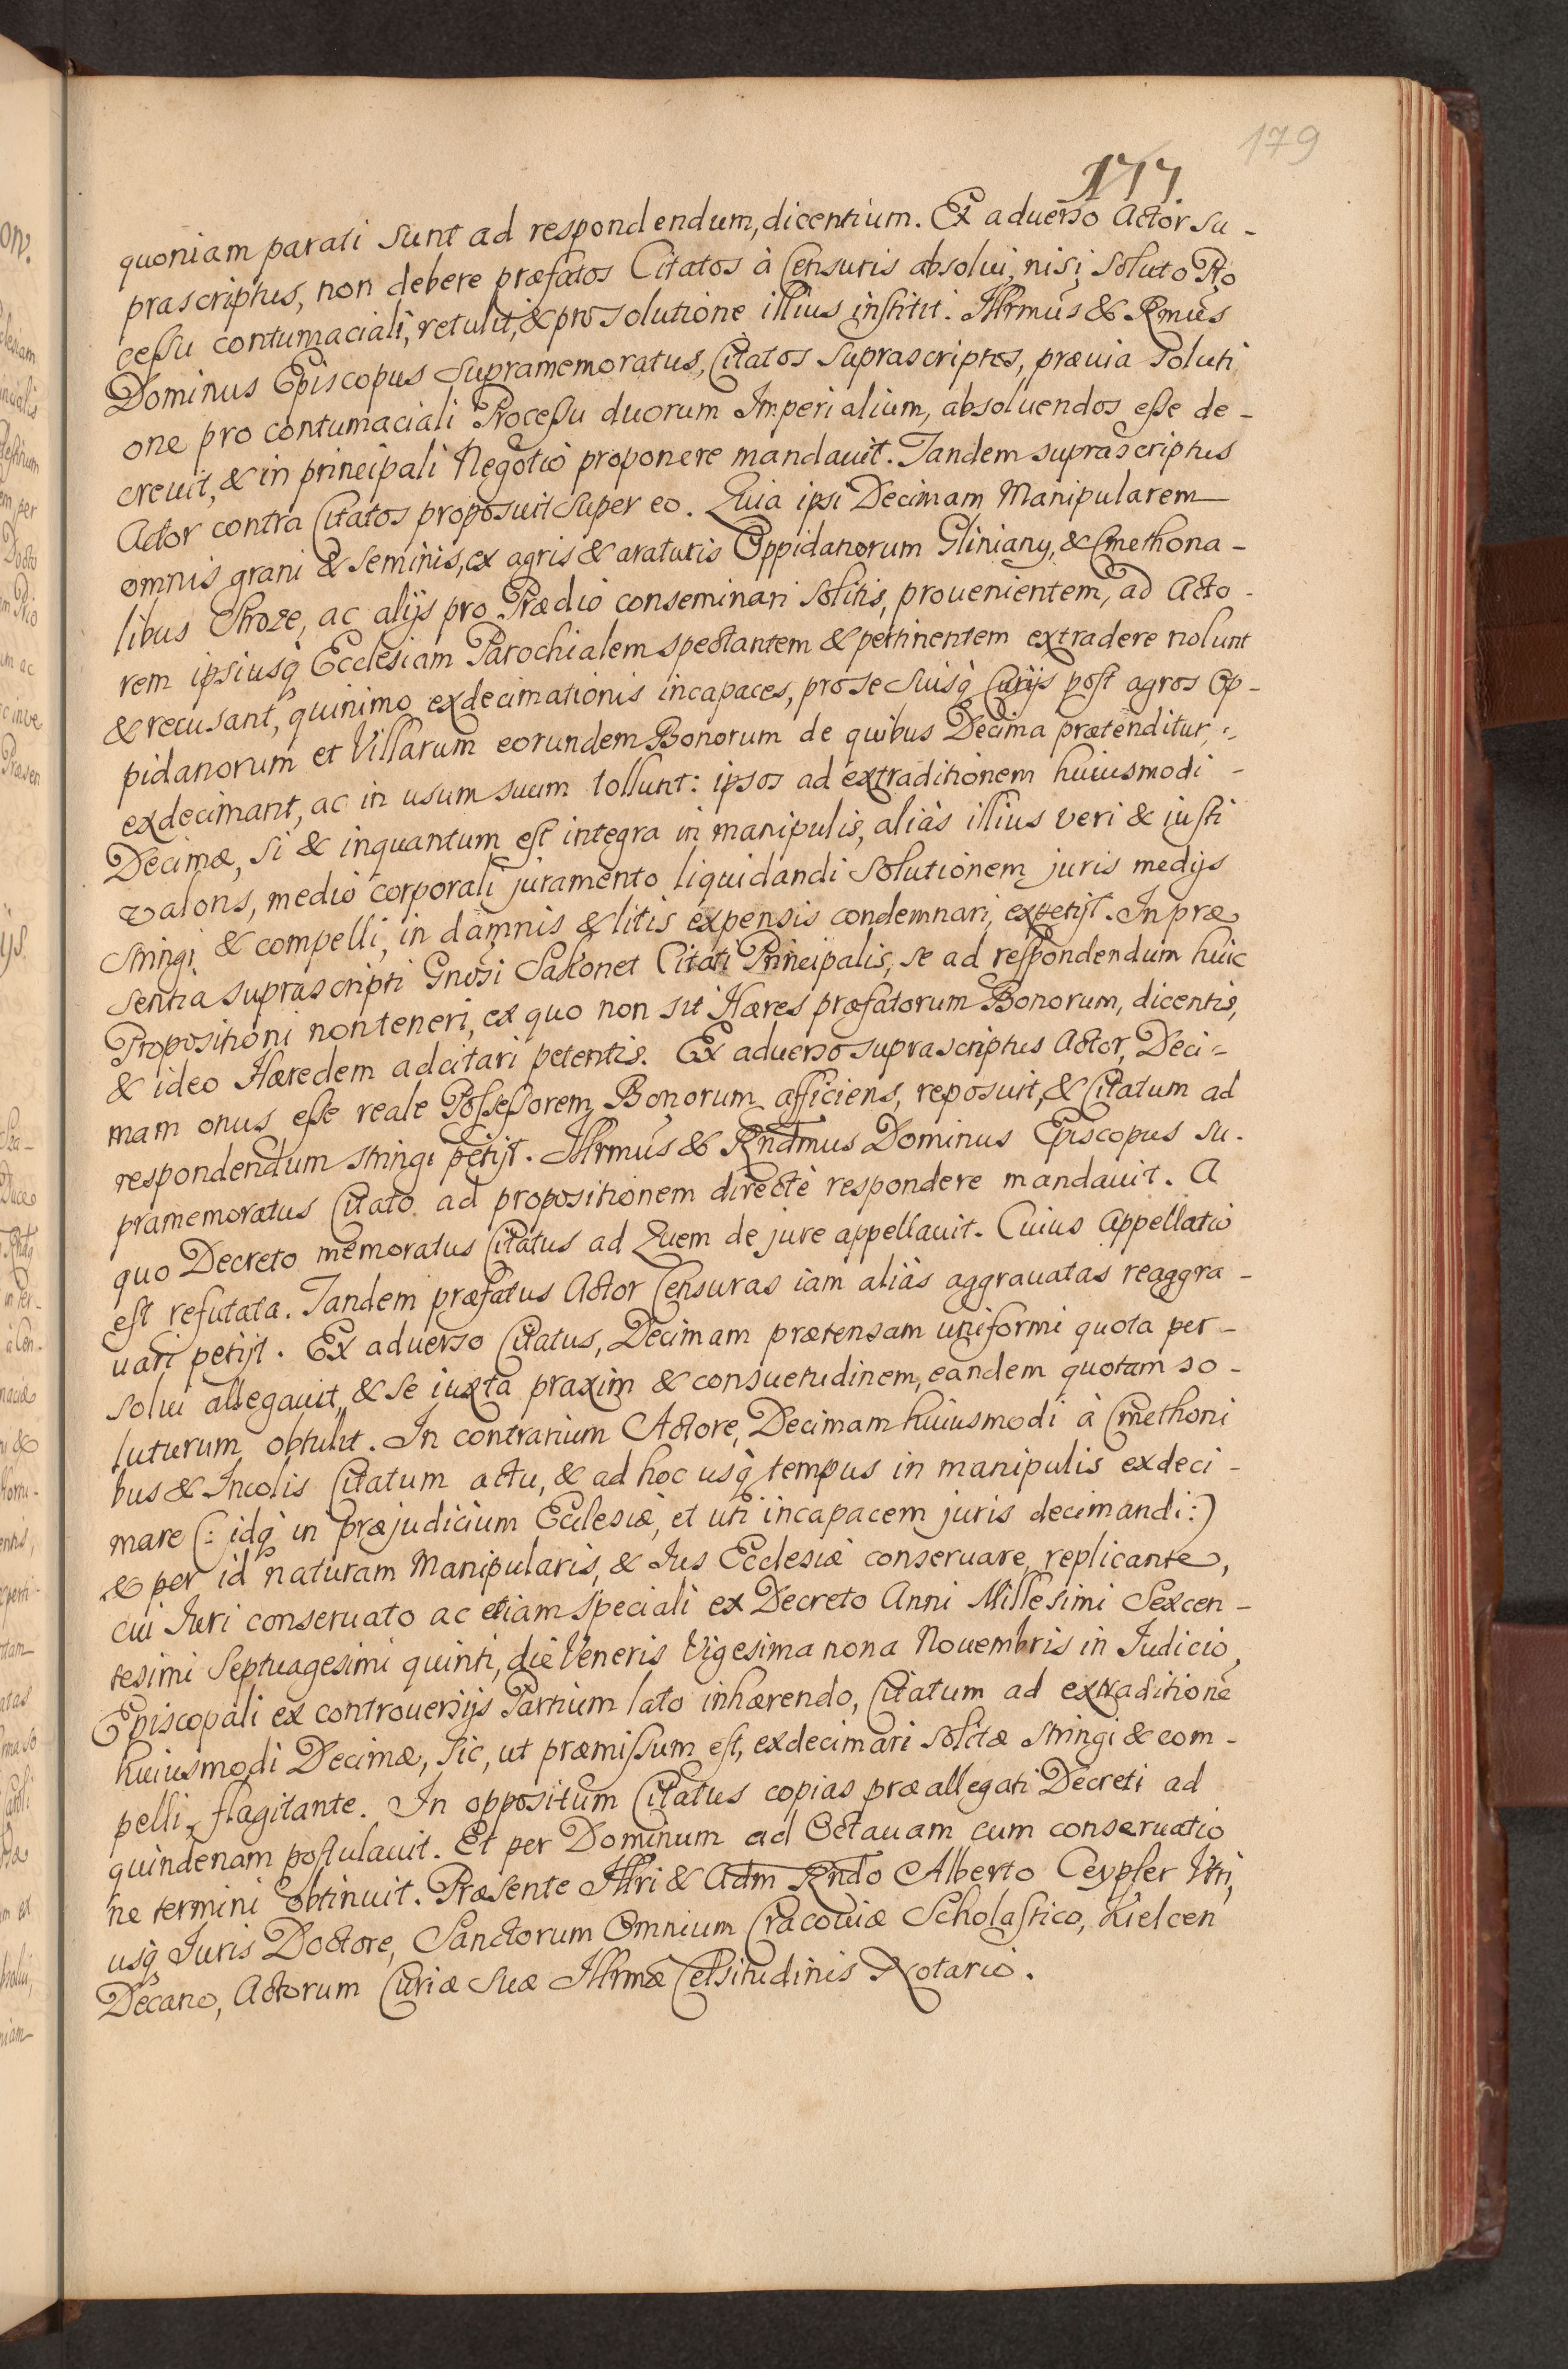 179
177
quoniam parati sunt ad respondendum, dicentium. Ex aduerso Actor su-
prascriptus, non debere præfatos Citatos à Censuris absolui, nisi soluto Pro
cessu contumaciali, retulit, & pro solutione illius institit. Illrmus & Rmus
Dominus Episcopus supramemoratus, Citatos suprascriptos, præuia soluti
one pro contumaciali Processu duorum Imperialium, absoluendos esse de-
creuit, & in principali Negotio proponere mandauit. Tandem suprascriptus
Actor contra Citatos proposuit super eo. Quia ipsi Decimam Manipularem
omnis grani & seminis, ex agris & araturis Oppidanorum Gliniany, & Cmethona-
libus Stroze, ac alijs pro Prædio conseminari solitis, prouenientem, ad Acto-
rem ipsiusq Ecclesiam Parochialem spectantem & pertinentem extradere nolunt
& recusant, quinimo exdecimationis incapaces, pro se suisq Curijs post agros Op-
pidanorum et Villarum eorundem Bonorum de quibus Decima prætenditur,
exdecimant, ac in usum suum tollunt: ipsos ad extraditionem huiusmodi -
Decimæ, si & inquantum est integra in manipulis, aliàs illius veri & iusti
valoris, medio corporali juramento liquidandi solutionem juris medijs
stringi & compelli, in damnis & litis expensis condemnari, expetijt. In præ
sentia suprascripti Gnosi Sakonet Citati Principalis, se ad respondendum huic
Propositioni non teneri, ex quo non sit Hæres præfatorum Bonorum, dicentis,
& ideo Hæredem adcitari petentis. Ex aduerso suprascriptus Actor, Deci=
mam onus esse reale Possessorem Bonorum afficiens, reposuit, & Citatum ad
respondendum stringi petijt. Illrmus & Rndmus Dominus Episcopus su-
pramemoratus Citato ad propositionem directè respondere mandauit. A
quo Decreto memoratus Citatus ad Quem de jure appellauit. Cuius Appellatio
est refutata. Tandem præfatus Actor Censuras iam aliàs aggrauatas reaggra-
uari petijt. Ex aduerso Citatus, Decimam prætensam uniformi quota per-
solui allegauit, & se iuxta praxim & consuetudinem, eandem quotam so-
luturum obtulit. In contrarium Actore, Decimam huiusmodi à Cmethoni
bus & Incolis Citatum actu, & ad hoc usq tempus in manipulis exdeci-
mare (: idq in præjudicium Ecclesiæ, et uti incapacem juris decimandi:)
& per id naturam Manipularis, & Ius Ecclesiæ conseruare, replicante,
cui Iuri conseruato ac etiam speciali ex Decreto Anni Millesimi Sexcen-
tesimi Septuagesimi quinti, die Veneris Vigesima nona Nouembris in Iudicio,
Episcopali ex controuersijs Partium lato inhærendo, Citatum ad extraditionē
huiusmodi Decimæ, sic, ut præmissum est, exdecimari solitæ stringi & com-
pelli, flagitante. In oppositum Citatus copias præallegati Decreti ad
quindenam postulauit. Et per Dominum ad Octauam cum conseruatio
ne termini obtinuit. Præsente Illri & Adm Rndo Alberto Ceypler Utri,
usq Iuris Doctore, Sanctorum Omnium Cracouiæ Scholastico, Kielcen
Decano, Actorum Curiæ Suæ Illrmæ Celsitudinis Notario.